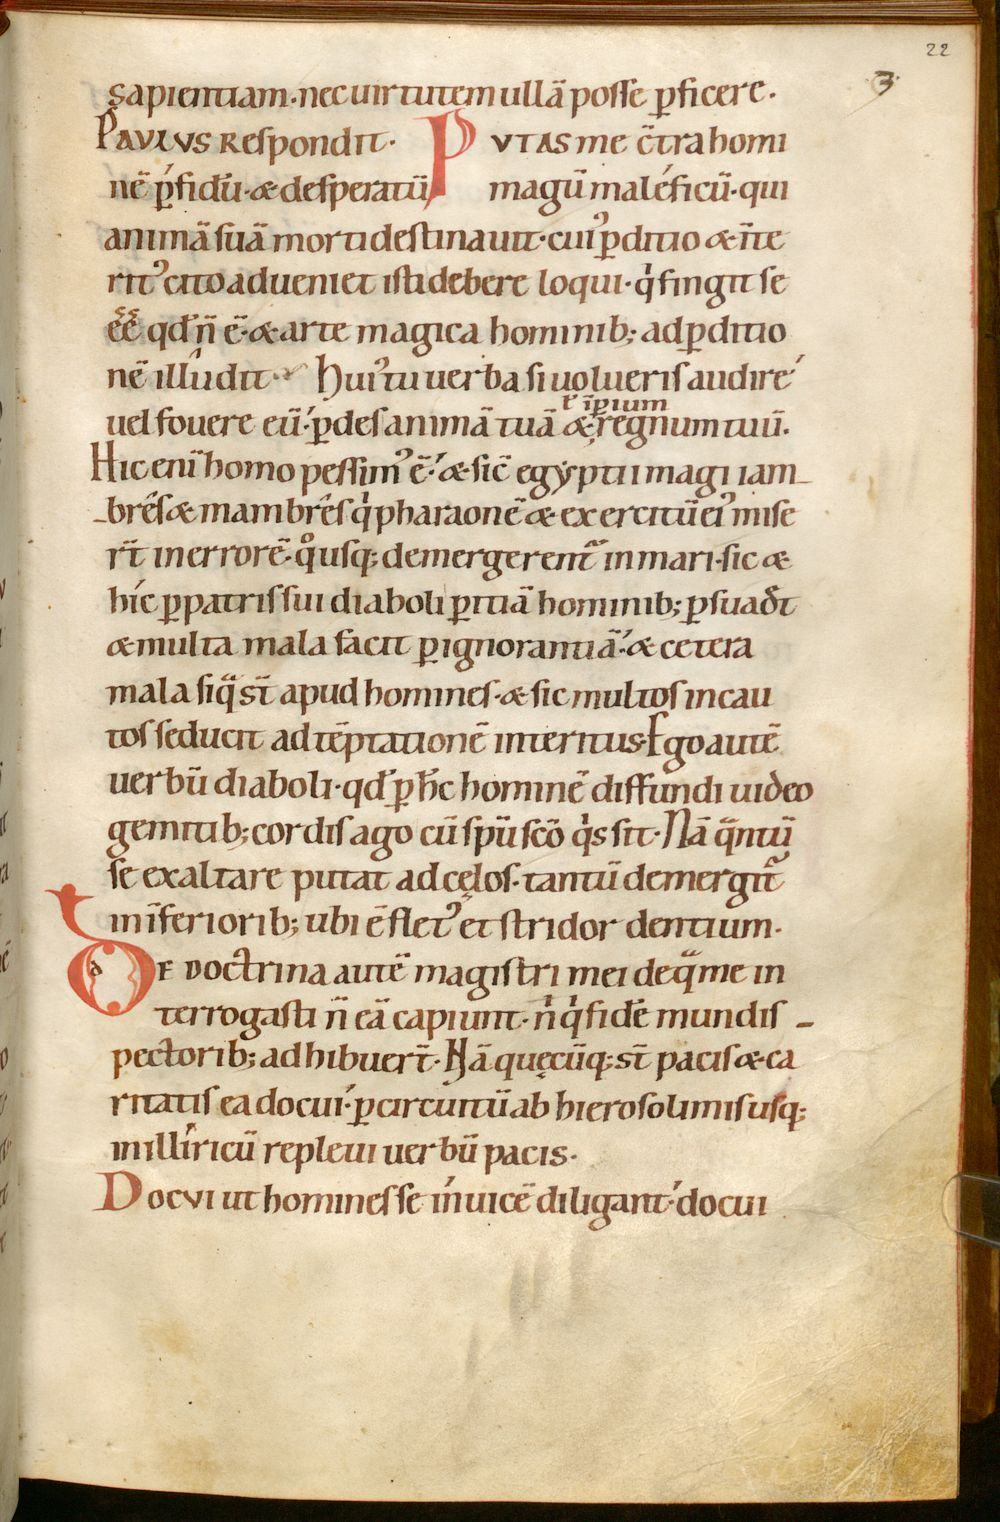 22
3
sapientiam · nec uirtutem ullā posse ꝑficere ·
PAVLVS Respondit · PVTAS me c̄tra homi
nē ꝑfidū · & desperatū magū maleficū · qui
animā suā morti destinauit · cui᾿ ꝑditio & īte
rit᾿ cito adueniet isti debere loqui · qͥ fingit se
ēē qd̄ n̄ ē · & arte magica hominib; ad ꝑditio
nē illudit · Hui᾿ tu uerba si uolueris audire
ł īꝑium
uel fouere eū · ꝑdes animā tuā & regnum tuū .
Hic eni homo pessim᾿ ē · & sic̄ egyptii magi iam
bres & mambres qͥ pharaonē & exercitū ei᾿ mise
rt̄ in errorē · qͦusq; demergerent᾿ in mari · sic &
hic ꝑ patris sui diaboli ꝑitiā hominib; ꝑsuad&
& multa mala facit ꝑ ignorantiā · & cetera
mala si qͣ st̄ apud homines · & sic multos incau
tos seducit ad tēptationē interitus · Ego autē
uerbū diaboli · qd̄ ꝑ hc̄ hominē diffundi uideo
gemitib; cordis ago cū spū scō qͥs sit · Nā qͣntū
se exaltare putat ad cęlos · tantū demergit᾿
in īferiorib; ubi ē flet᾿ et stridor dentium ·
DE Doctrina autē magistri mei de qͣ me in
terrogasti n̄ eā capiunt · nͥ qͥ fidē mundis
pectorib; adhibuert̄ · Nā quęcūq; st̄ pacis & ca
ritatis ea docui · ꝑ circuitū ab hierosolimis usq;
in illiricū repleui uerbū pacis ·
Docui ut homines se inuicē diligant · docui